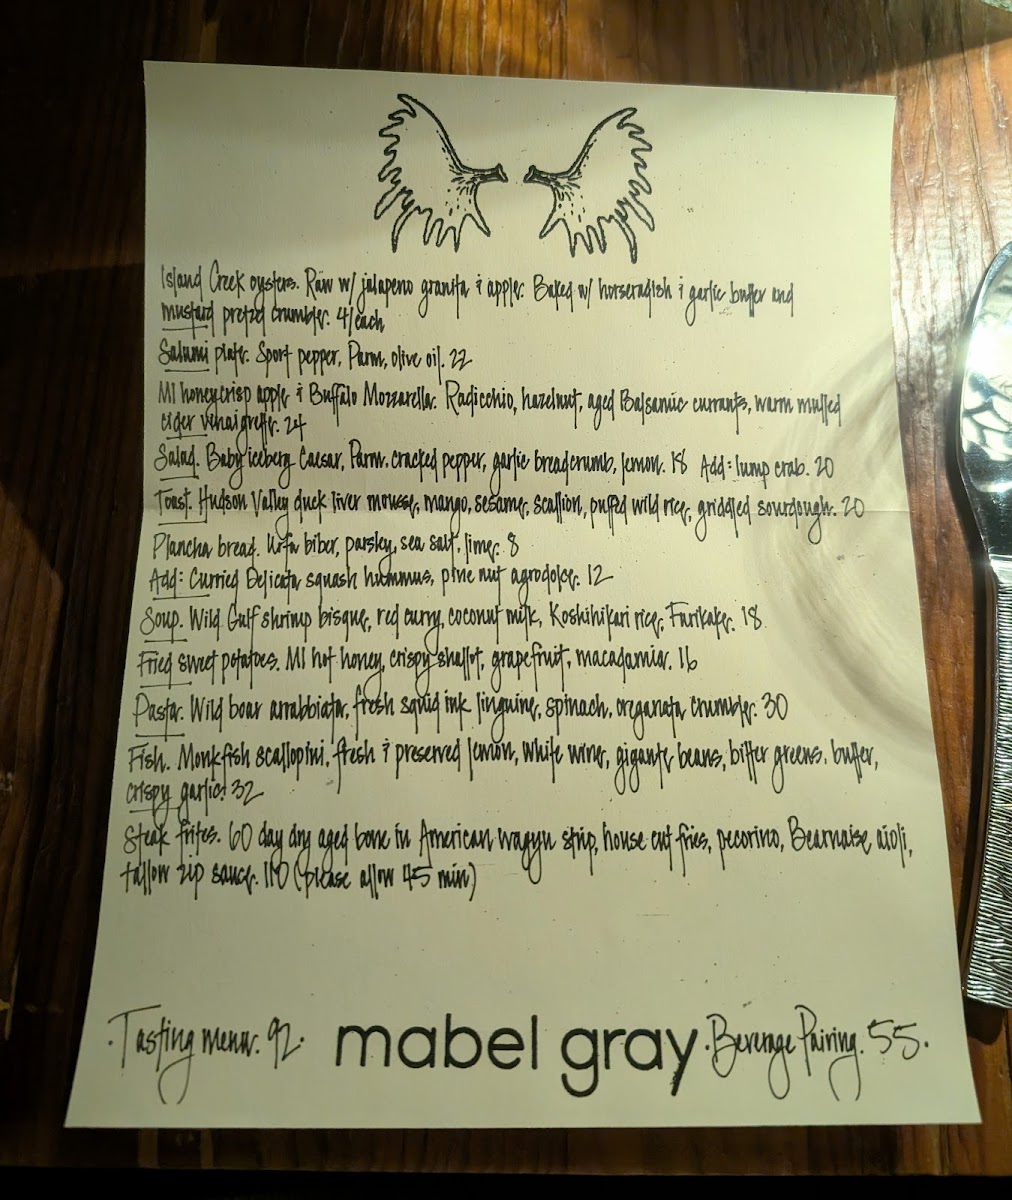 Island Creek oysters. Raw w/ jalapeno granita & apple. Baked w/ horseradish & garlic butter and
mustard pretzel crumble. 4/each
Salumi plate. Sport pepper, Parm, olive oil. 22
MI honeycrisp apple & Buffalo Mozzarella. Radicchio, hazelnut, aged Balsamic currants, warm mulled
cider vinaigrette. 24
Salad. Baby iceberg Caesar, Parm. cracked pepper, garlic breadcrumb, lemon. 18 Add: lump crab. 20
Toast. Hudson Valley duck liver mousse, mango, sesame, scallion, puffed wild rice, griddled sourdough. 20
Plancha bread. Urfa biber, parsley, sea salt, lime. 8
Add: Curried Delicata squash hummus, pine nut agrodolce. 12
Soup. Wild Gulf shrimp bisque, red curry, coconut milk, Koshihikari rice, Furikake. 18
Fried sweet potatoes. MI hot honey, crispy shallot, grapefruit, macadamia. 16
Pasta. Wild boar arrabbiata, fresh squid ink linguine, spinach, oreganata crumble. 30
Fish. Monkfish scallopini, fresh & preserved lemon, white wine, gigante beans, bitter greens, butter,
crispy garlic. 32
Steak frites. 60 day dry aged bone in American wagyu strip, house cut fries, pecorino, Bearnaise aioli,
tallow zip sauce. 110 (please allow 45 min)
·Tasting menu. 92· mabel gray ·Beverage Pairing. 55·